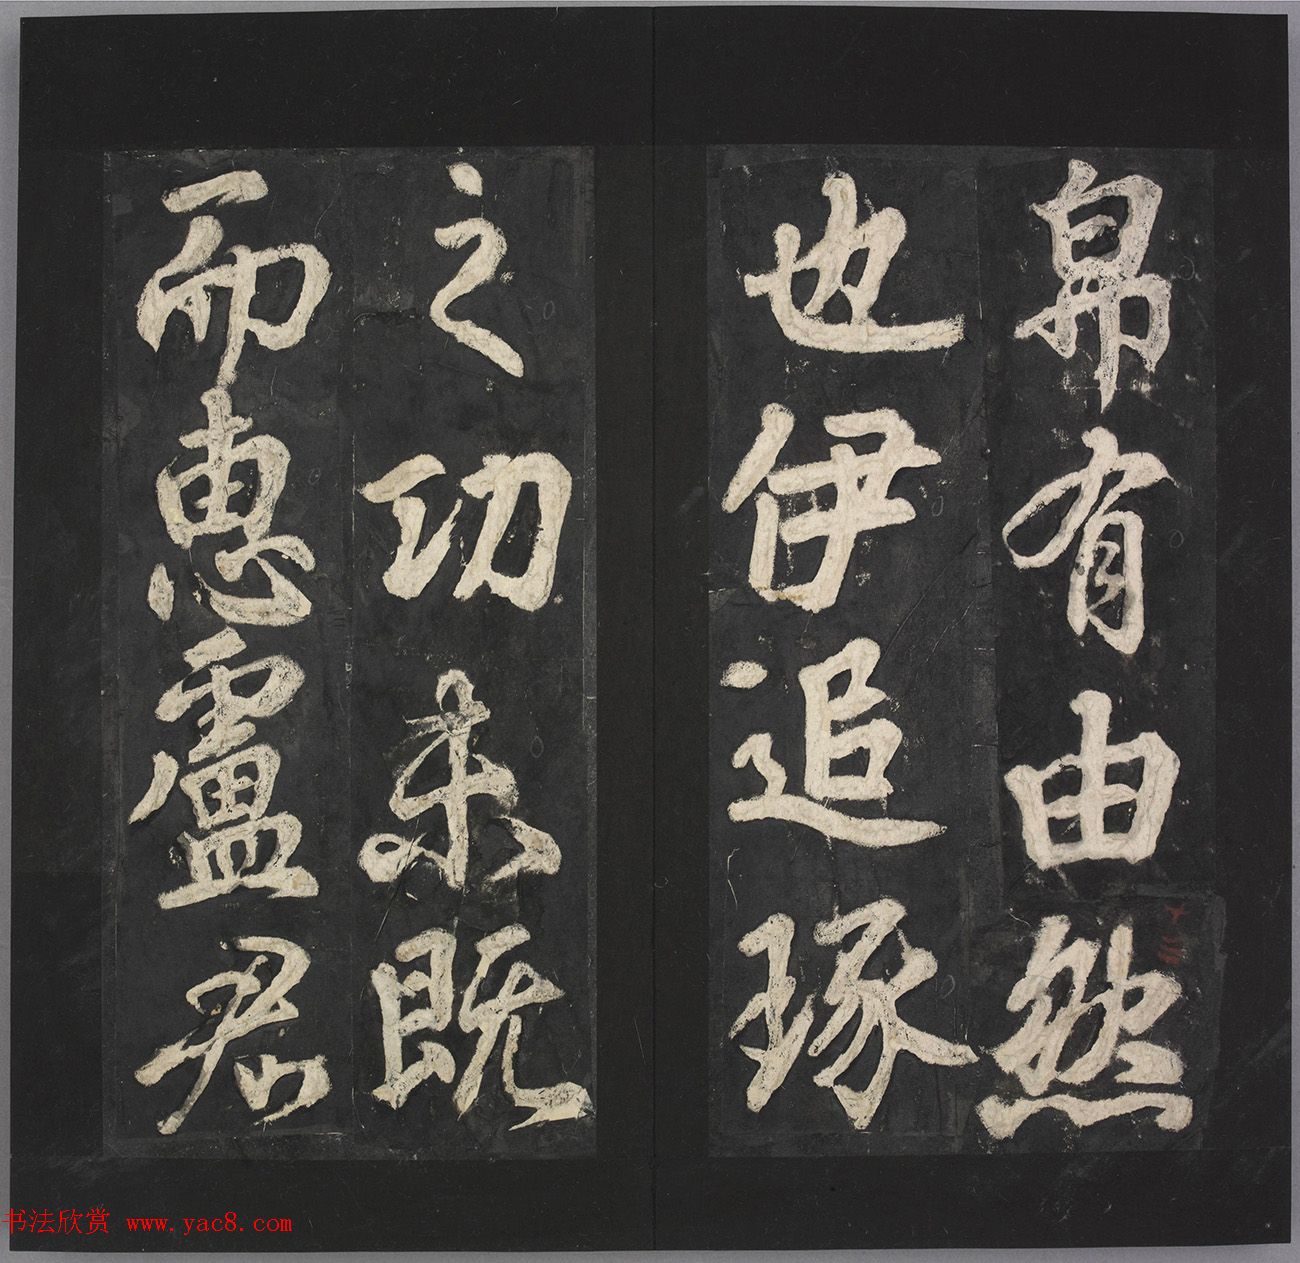 帛有由然
也伊追琢
之功未既
而惠盧君
十三
书法欣赏 www.yac8.com